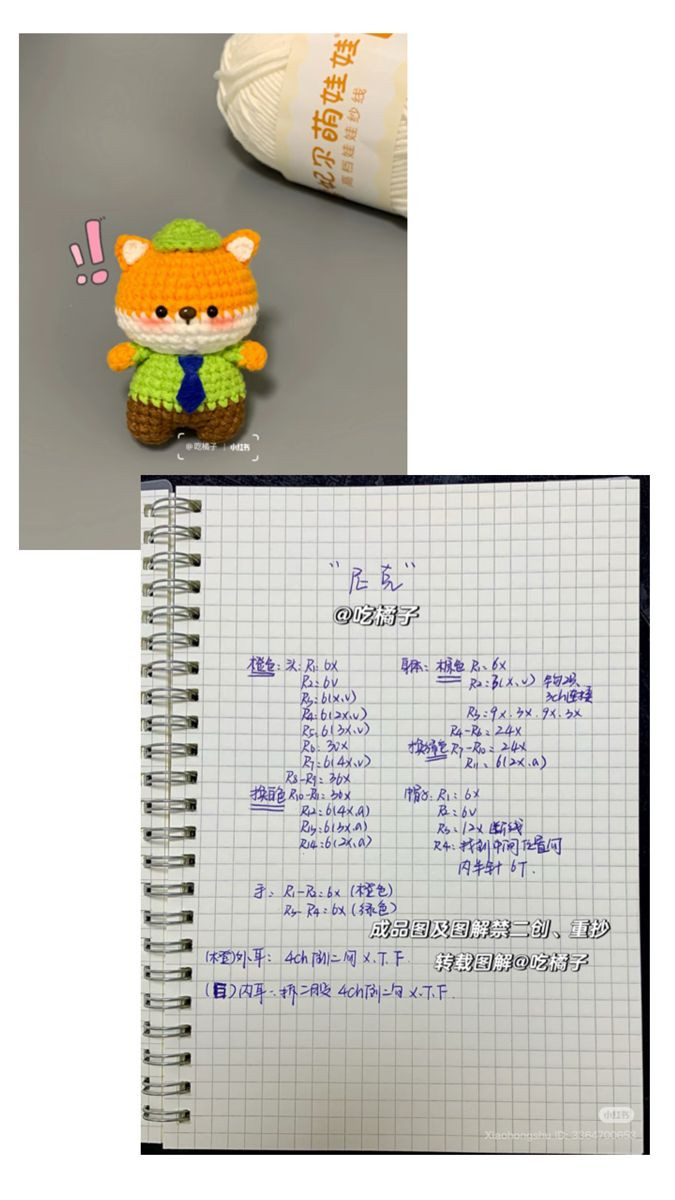 妃尔萌娃娃
高档娃娃纱线
@吃橘子 | 小红书
"尼克"
@吃橘子
橙色: 头: R1: 6X
R2: 6V
R3: 6(X,V)
R4: 6(2X,V)
R5: 6(3X,V)
R6: 30X
R7: 6(4X,V)
R8-R9: 36X
换白色 R10-R11: 36X
R12: 6(4X,A)
R13: 6(3X,A)
R14: 6(2X,A)
身体: 棕色 R1: 6X
R2: 3(X,V) 钩2项
3ch连接
R3: 9X.3X.9X.3X
R4-R6: 24X
换绿色 R7-R10: 24X
R11: 6(2X,A)
帽子: R1: 6X
R2: 6V
R3: 12X 断线
R4: 找到中间位置间
内半针 6T.
手: R1-R2: 6X (橙色)
R3-R4: 6X (绿色)
成品图及图解禁二创、重抄
(橙)外耳: 4ch 倒二勾 X.T.F.
转载图解@吃橘子
(白)内耳: 拆二股 4ch倒二勾 X.T.F.
小红书
Xiaohongshu ID: 3364700653